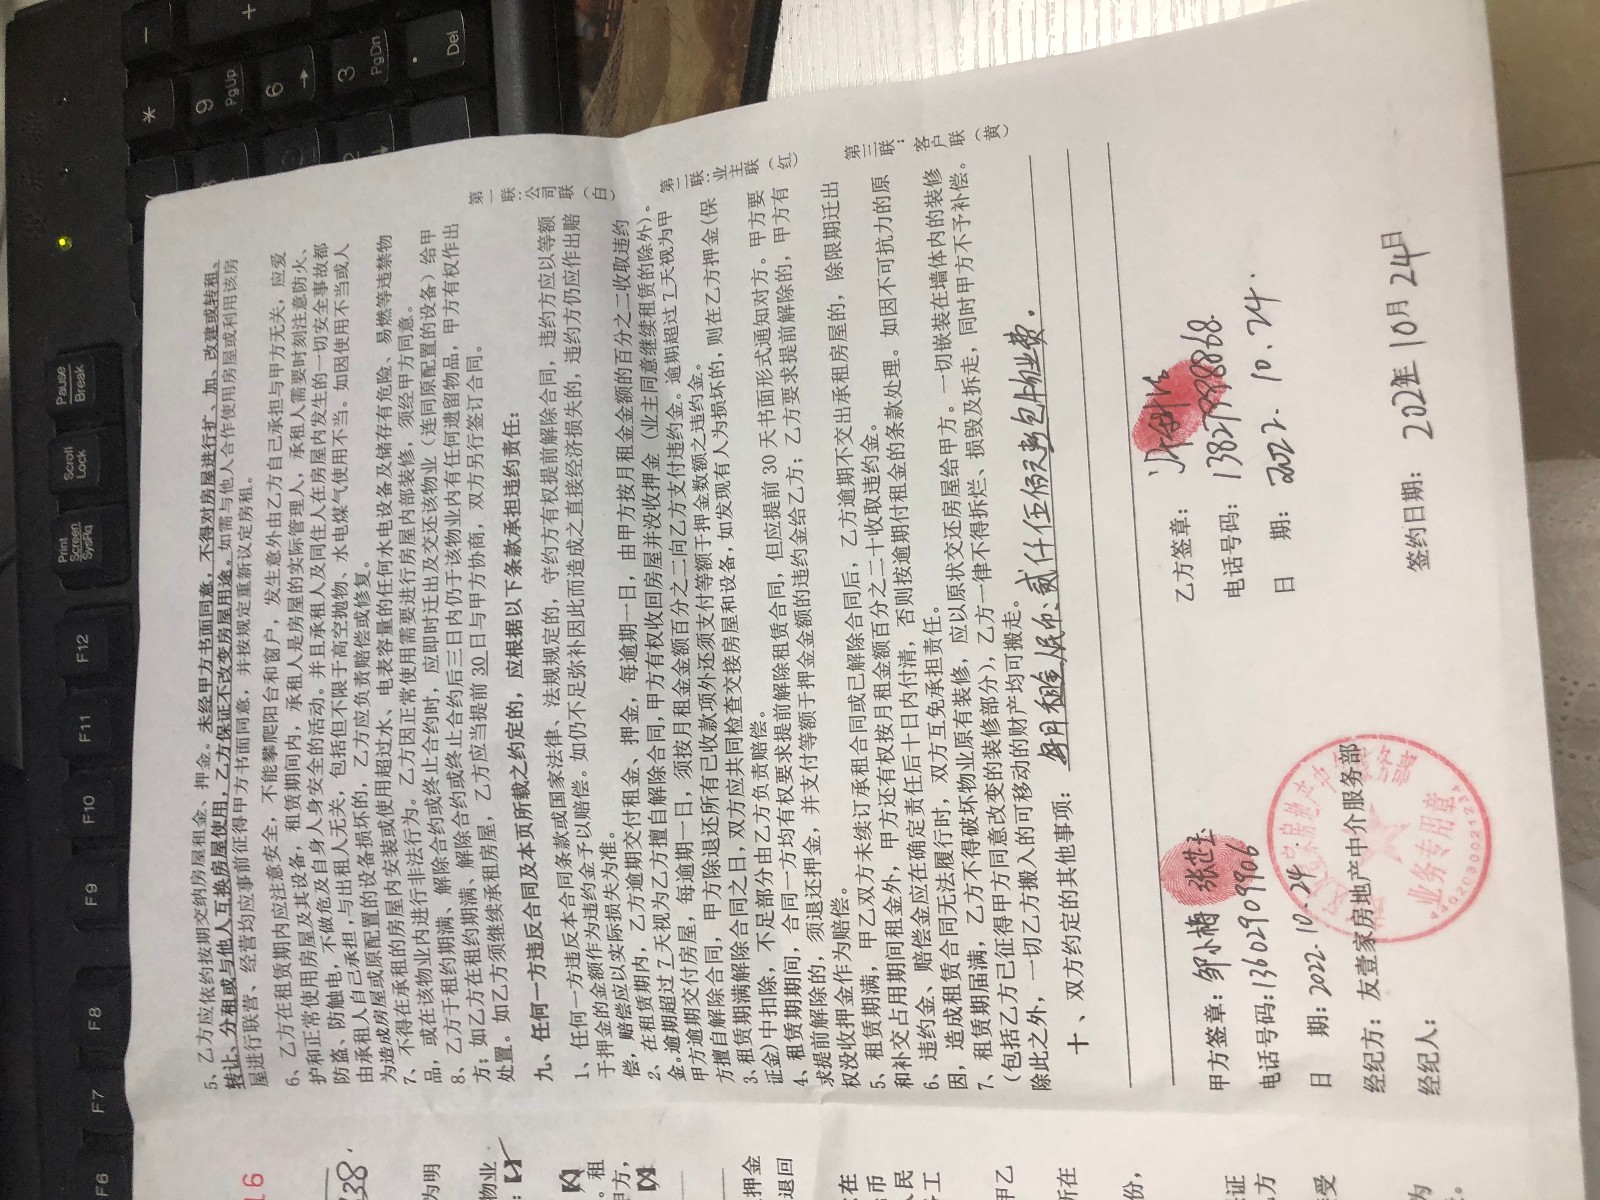 5、乙方应依约按期交纳房屋租金、押金。未经甲方书面同意，不得对房屋进行扩、加、改建或转租、
转让、分租或与他人互换房屋使用，乙方保证不改变房屋用途。如需与他人合作使用房屋或利用该房
屋进行联营、经营均应事前征得甲方书面同意，并按规定重新议定房租。
6、乙方在租赁期内应注意安全，不能攀爬阳台和窗户，发生意外由乙方自己承担与甲方无关，应爱
护和正常使用房屋及其设备，租赁期间内，承租人是房屋的实际管理人，承租人需要时刻注意防火、
防盗、防触电，不做危及自身人身安全的活动。并且承租人及同住人在房屋内发生的一切安全事故都
由承租人自己承担，与出租人无关，包括但不限于高空抛物、水电煤气使用不当。如因使用不当或人
为造成房屋或原配置的设备损坏的，乙方应负责赔偿或修复。
7、不得在承租的房屋内安装或使用超过水、电表容量的任何水电设备及储存有危险、易燃等违禁物
品，或在该物业内进行非法行为。乙方因正常使用需要进行房屋内部装修，须经甲方同意。
8、乙方于租约期满、解除合约或终止合约时，应即时迁出及交还该物业（连同原配置的设备）给甲
方；如乙方在租约期满、解除合约或终止合约后三日内仍于该物业内有任何遗留物品，甲方有权作出
处置。如乙方须继续承租房屋，乙方应当提前30日与甲方协商，双方另行签订合同。
九、任何一方违反合同及本页所载之约定的，应根据以下条款承担违约责任：
1、任何一方违反本合同条款或国家法律、法规规定的，守约方有权提前解除合同，违约方应以等额
于押金的金额作为违约金予以赔偿。如仍不足弥补因此而造成之直接经济损失的，违约方仍应作出赔
偿，赔偿应以实际损失为准。
2、在租赁期内，乙方逾期交付租金、押金，每逾期一日，由甲方按月租金金额的百分之二收取违约
金。逾期超过7天视为乙方擅自解除合同，甲方有权收回房屋并没收押金（业主同意继续租赁的除外）。
甲方逾期交付房屋，每逾期一日，须按月租金金额百分之二向乙方支付违约金。逾期超过7天视为甲
方擅自解除合同，甲方除退还所有已收款项外还须支付等额于押金数额之违约金。
3、租赁期满解除合同之日，双方应共同检查交接房屋和设备，如发现有人为损坏的，则在乙方押金(保
证金)中扣除，不足部分由乙方负责赔偿。
4、租赁期期间，合同一方均有权要求提前解除租赁合同，但应提前30天书面形式通知对方。甲方要
求提前解除的，须退还押金，并支付等额于押金金额的违约金给乙方；乙方要求提前解除的，甲方有
权没收押金作为赔偿。
5、租赁期满，甲乙双方未续订承租合同或已解除合同后，乙方逾期不交出承租房屋的，除限期迁出
和补交占用期间租金外，甲方还有权按月租金额百分之二十收取违约金。
6、违约金、赔偿金应在确定责任后十日内付清，否则按逾期付租金的条款处理。如因不可抗力的原
因，造成租赁合同无法履行时，双方互免承担责任。
7、租赁期届满，乙方不得破坏物业原有装修，应以原状交还房屋给甲方。一切嵌装在墙体内的装修
(包括乙方已征得甲方同意改变的装修部分)，乙方一律不得拆烂、损毁及拆走，同时甲方不予补偿。
除此之外，一切乙方搬入的可移动的财产均可搬走。
十、双方约定的其他事项：每月租金人民币：贰仟伍佰元整包物业费.
第一联：公司联（白）
第二联：业主联（红）
第三联：客户联（黄）
甲方签章：邹小梅
电话号码：13602909906
日 期：2022.10.24.
经纪方：友壹家房地产中介服务部
经纪人：
乙方签章：
电话号码：
日 期：2022.10.24.
签约日期：2022年10月24日
业务专用章
Print Screen SysRq
Scroll Lock
Pause Break
F6
F7
F8
F9
F10
F11
F12
*
-
+
9 PgUp
6
3 PgDn
. Del
16
38.
为明
物业
租
甲方，
押金
退回
甲乙
所在
份，